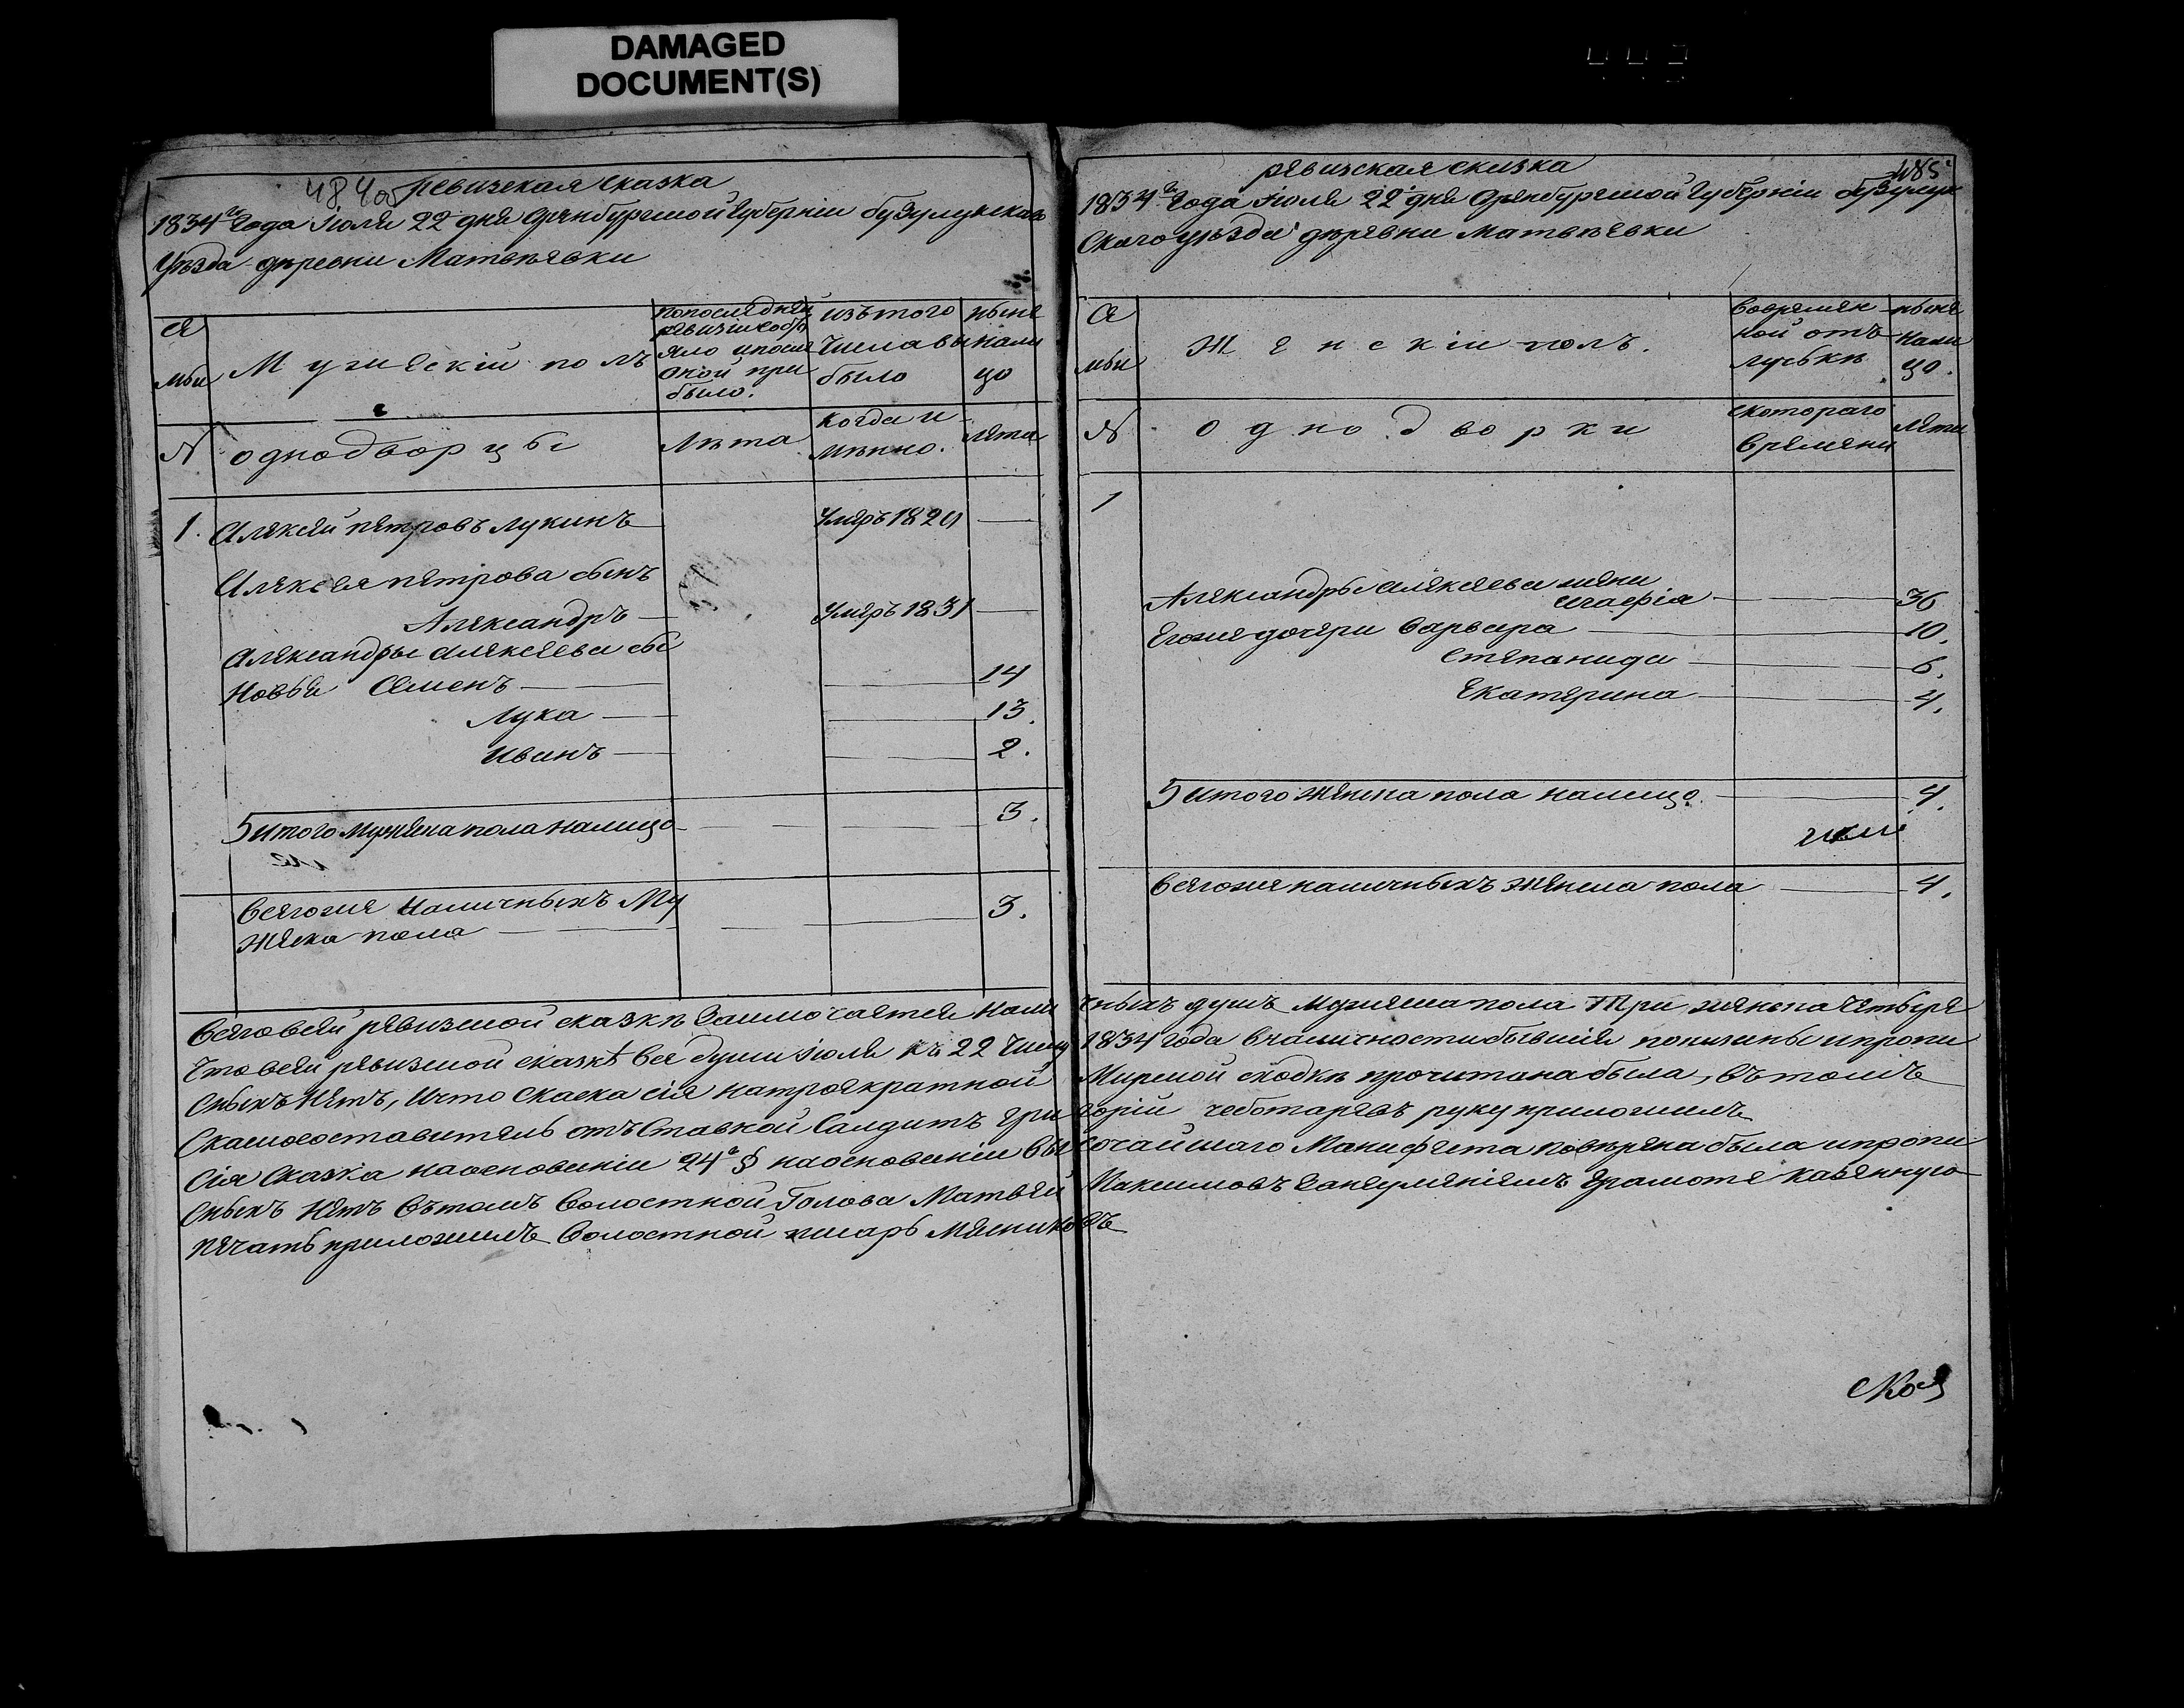 DAMAGED
DOCUMENT(S)
484об
ревизская сказка
1834го Года Июля 22 дня Оренбургской Губернии бузулукскаго
Уезда деревни Матвѣевки
Се
мьи
Мужескiй полъ
попоследней
ревизiи состо
яло ипосле
оной при
было.
изъ того
числа вы
было
ныне
нали
цо
№
однодворцы
Лѣта
когда и
мянно.
лета
1.
Алексей петровъ лукинъ
умеръ 1820
Алексея петрова сынъ
Александръ
умеръ 1831
Александры алексеева сы
новьи Семенъ
14
Лука
13.
Иванъ
2.
итого мужска пола налицо
3.
всегоже наличныхъ му
жска пола
3.
ревизская сказка
485
1834го Года Июля 22 дня Оренбургской Губернiи бузулук
скаго уезда деревни матвѣевки
Се
мьи
Женскiй полъ.
вовремян
ной отъ
лучкѣ
ныне
нали
цо.
№
однодворки
скотораго
времени
лета
1
Александры алексеева жена
36
Егоже дочери варвара
10.
степанида
6.
Екатерина
4.
итого женска пола налицо
4.
всегоже наличныхъ женска пола
4.
всего всей ревизской сказкѣ заключается нали чныхъ душъ мужеска пола три, женска четыре
что всей ревизской сказкѣ все души июля къ 22 числу 1834 года вналичности бывшiя показаны ипропи
сныхъ нетъ, ичто сказка сiя натроекратной мирской сходкѣ прочитана была, въ томъ
Сказкосоставитель отъставной салдатъ гри горiй чеботаревъ руку приложилъ
Сiя сказка наосновании 24го § наоснованiи вы сочайшаго манифеста поверена была ипропи
сныхъ нетъ въ томъ волостной голова матвей максимовъ занеуменiемъ грамоте казенную
печать приложилъ волостной писарь мясниковъ